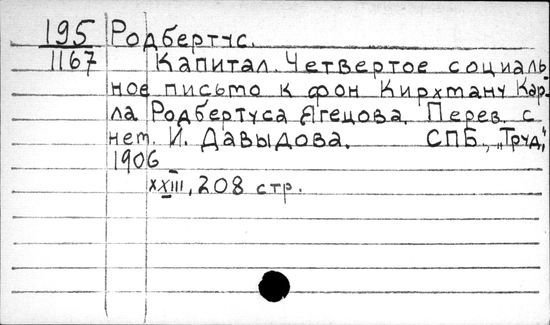 195 Родбертус.
1167 Капитал. Четвертое социаль-
ное письмо к фон Кирхману Кар-
ла Родбертуса Ягецова. Перев. с
нем. И. Давыдова. СПБ., „Труд",
1906
XXIII, 208 стр.